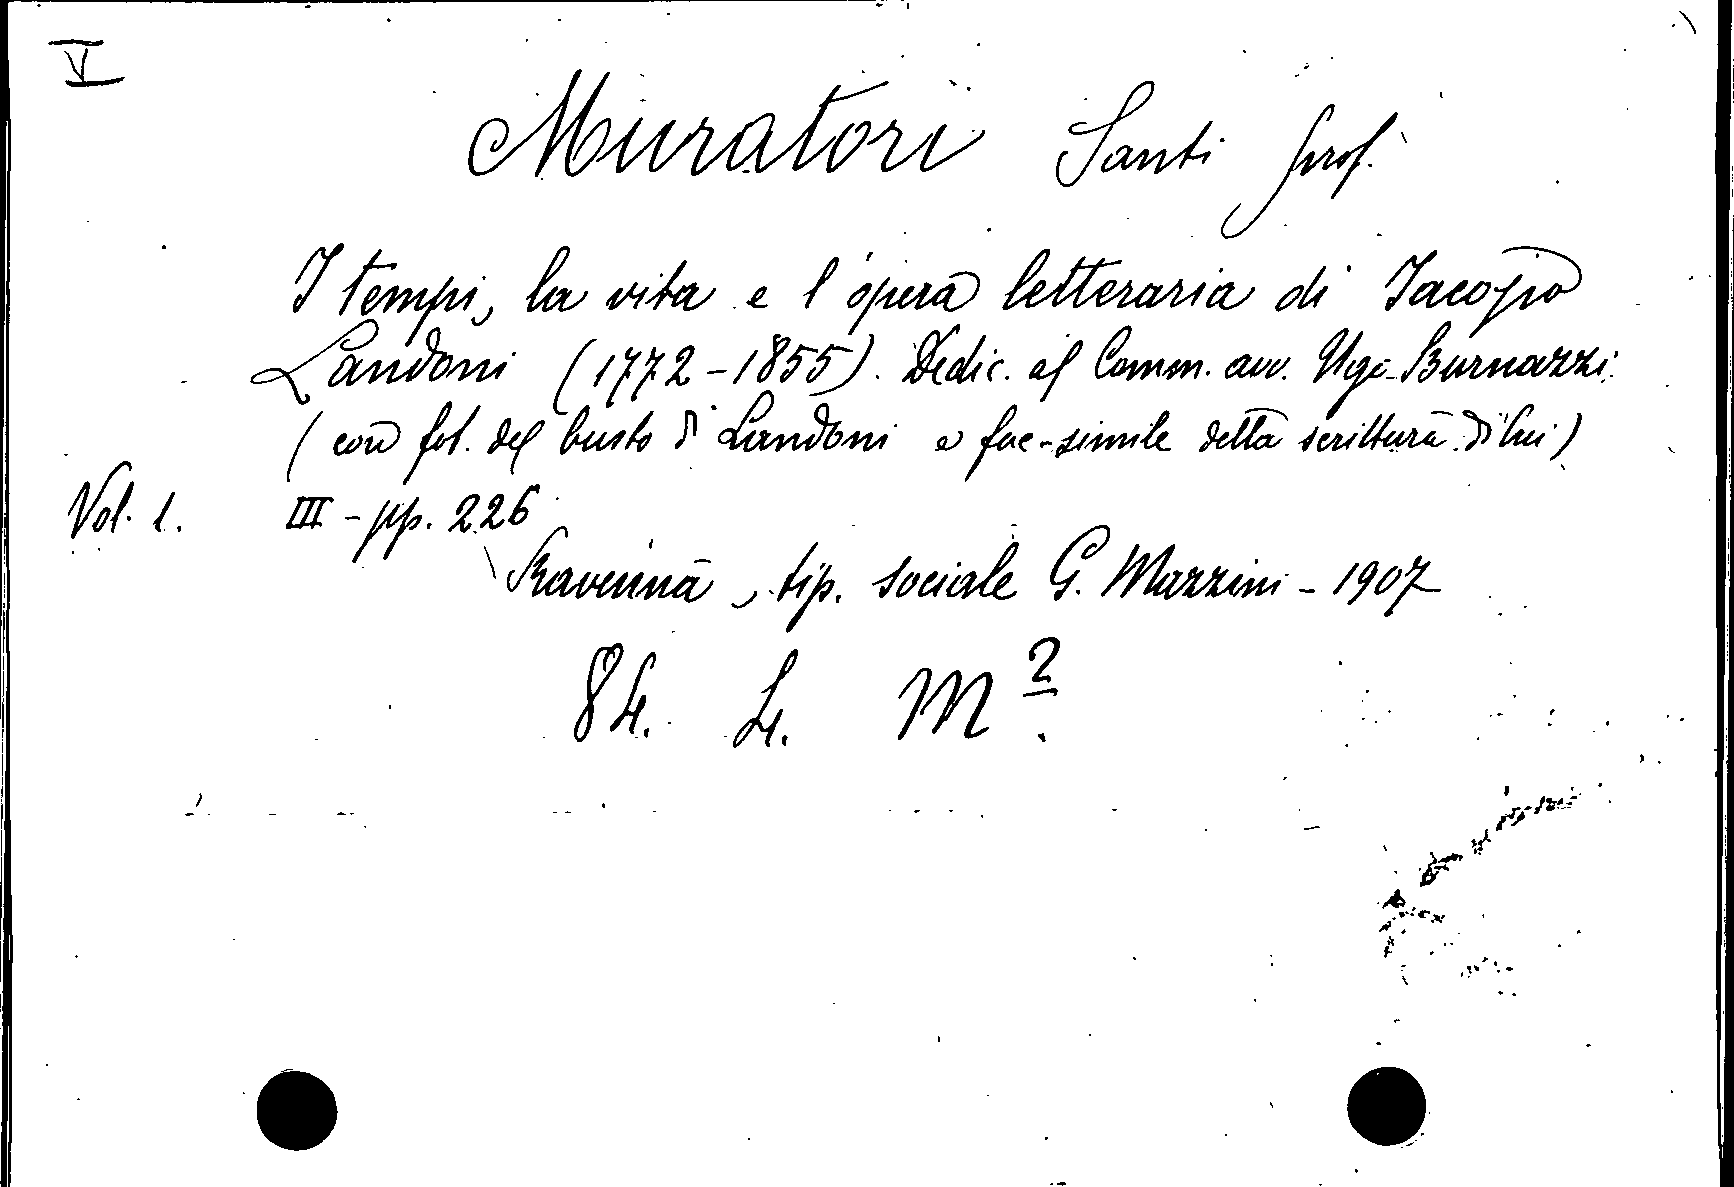 V
Muratori Santi prof.
I tempi, la vita e l'opera letteraria di Iacopo
Landoni (1772-1855). Dedic. al Comm. avv. Ugo Burnazzi
(con fot. del busto di Landoni e fac-simile della scrittura di lui)
Vol. 1. III - pp. 226
Ravenna, tip. sociale G. Mazzini - 1907
84. 4. M2.